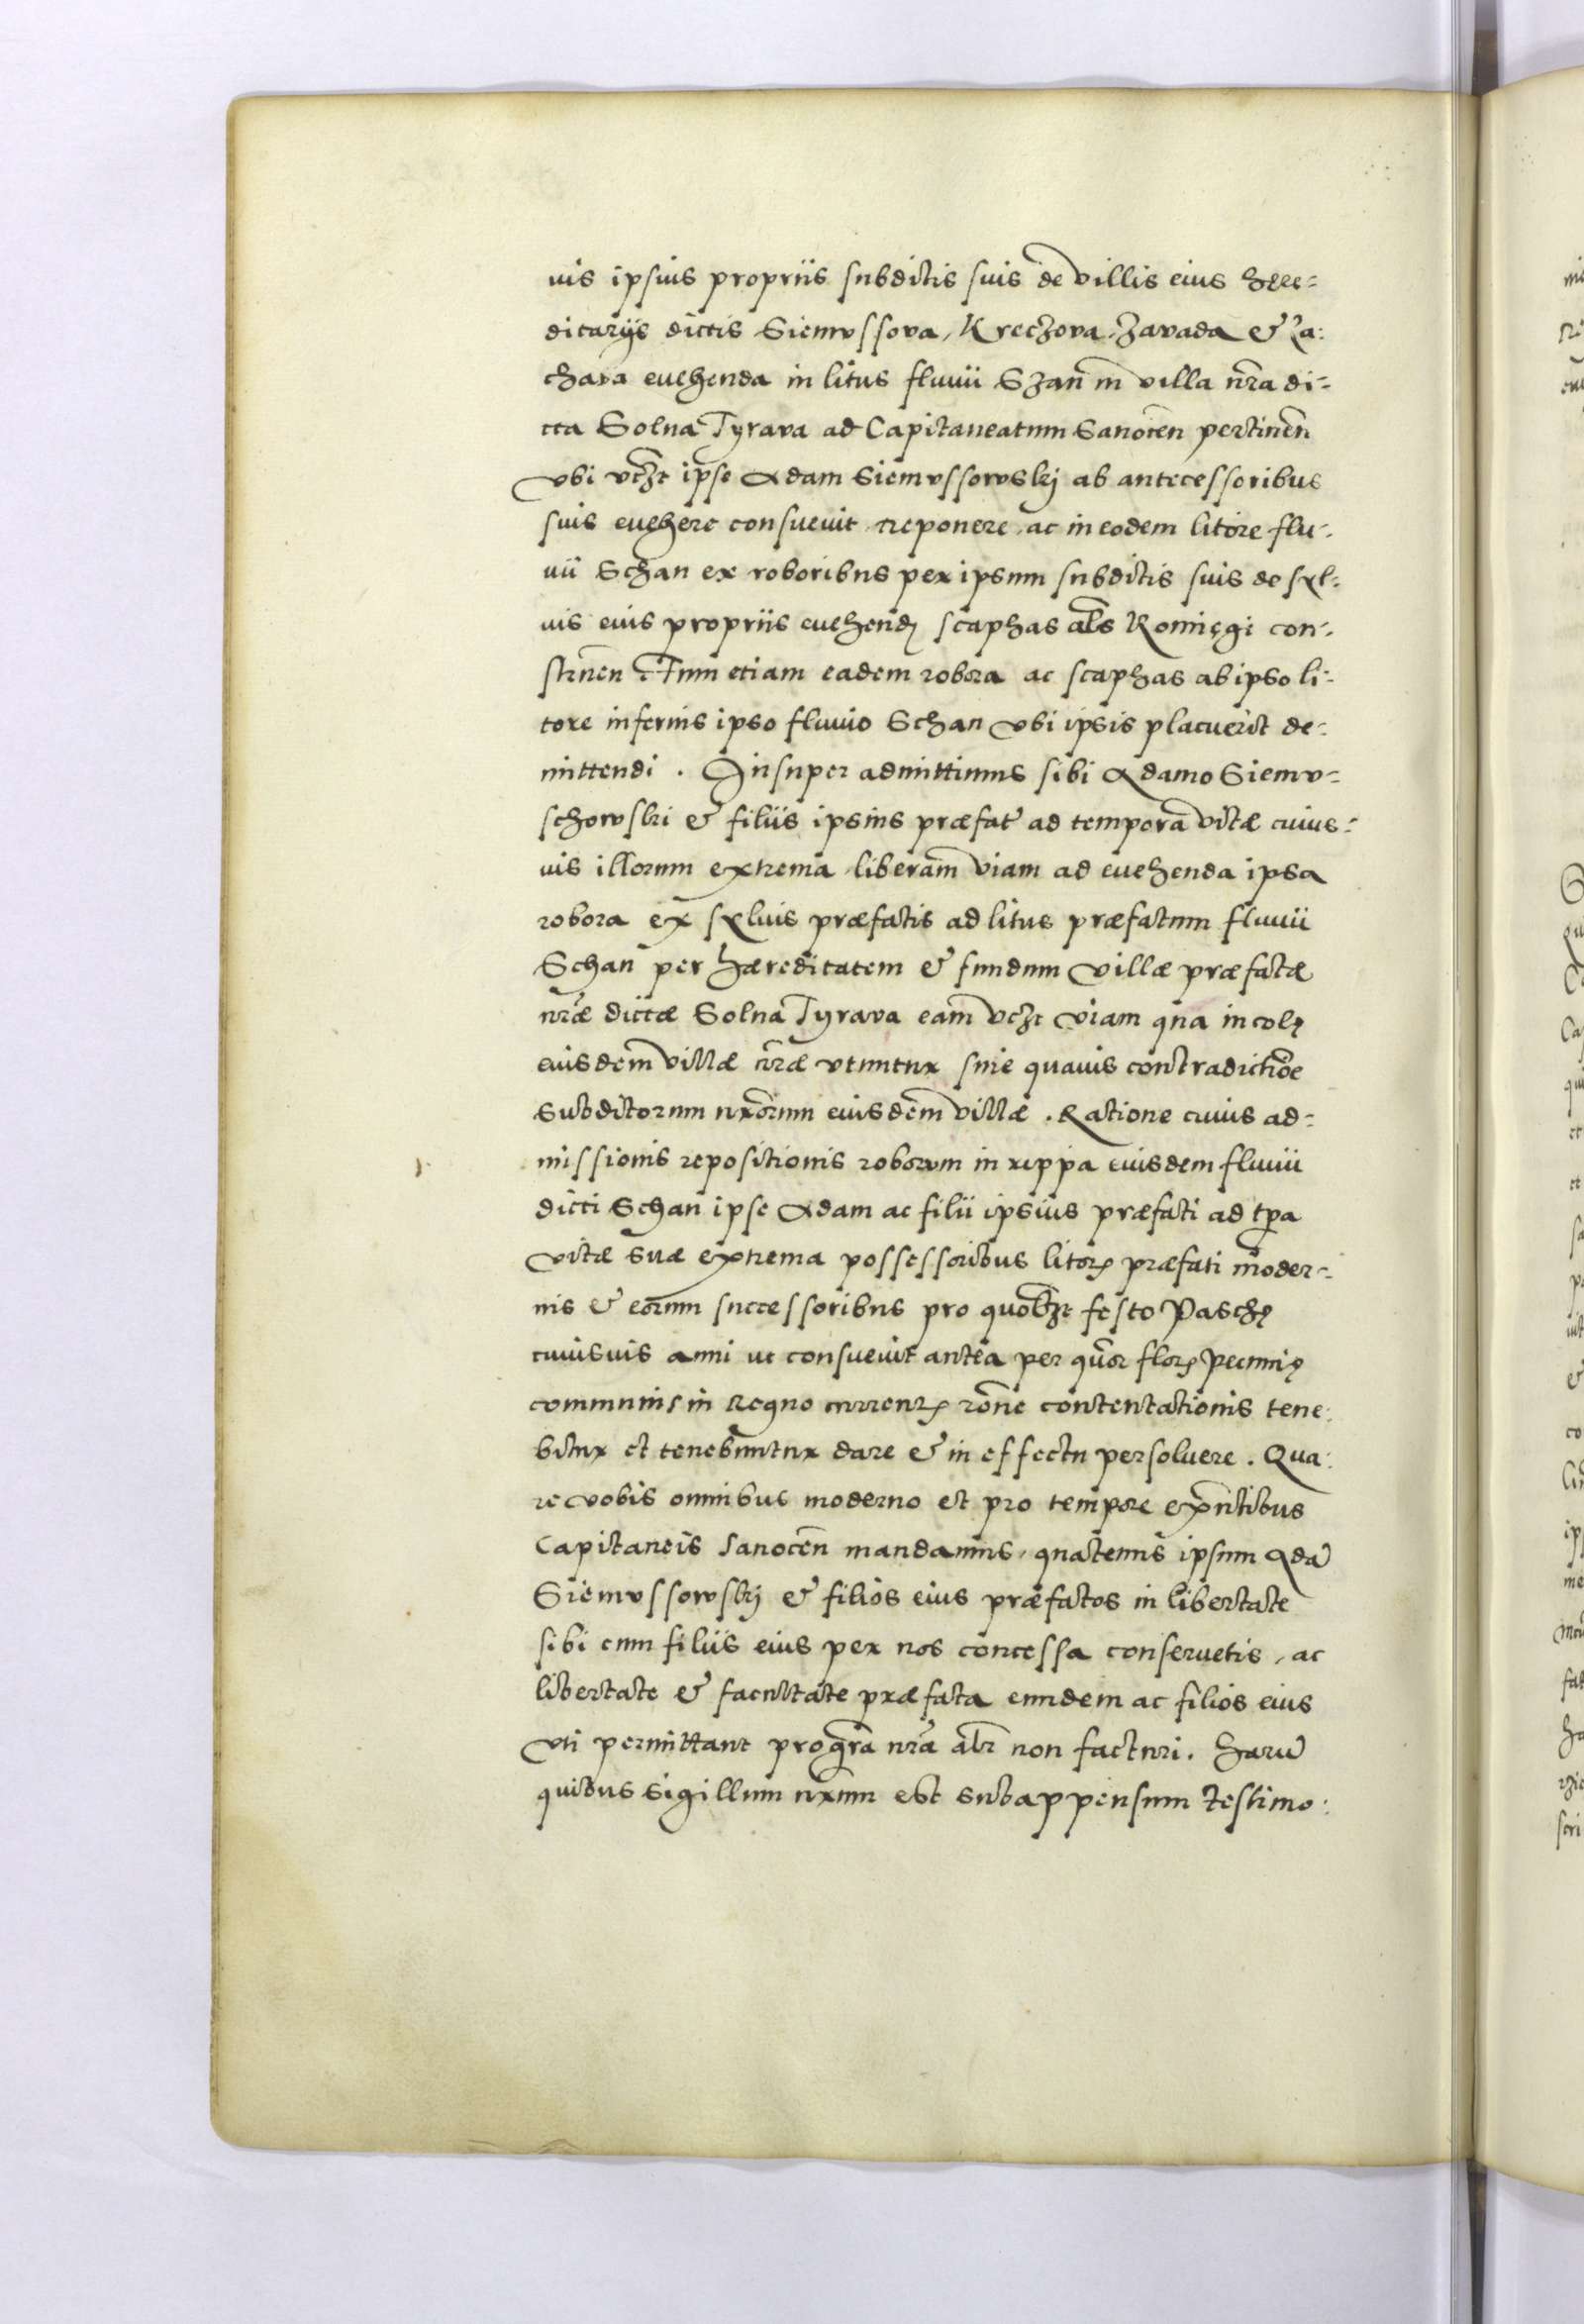 uis ipsius propriis subditis suis de villis eius hęre-
ditariis dictis Siemussova, Kreczova, Zavada & La-
chava euehenda in litus fluuii Szan in villa nr̃a di-
cta Solna Tyrava ad Capitaneatum Sanocen̄ pertinen̄
vbi vcz̄t ipse Adam Siemussowskij ab antecessoribus
suis euehere consueuit reponere, ac in eodem litore flu-
uii Schan ex roboribus per ipsum subditis suis de syl-
uis eius propriis euehend̨ scaphas al̄s Komięgi con-
struen̄ Tum etiam eadem robora ac scaphas ab ipso li-
tore inferius ipso fluuio Schan vbi ipsis placuerit de-
mittendi. Insuper admittimus sibi Adamo Siemu-
schowski & filiis ipsius præfat̄ ad tempora vitæ cuius-
uis illorum extrema liberam viam ad euehenda ipsa
robora ex syluis præfatis ad litus præfatum fluuii
Schan per hæreditatem & fundum villæ præfatæ
nr̃æ dictæ Solna Tyrava eam vcz̄t viam qua incolę
eiusdem villæ nr̃æ vtuntur sine quauis contradictiōe
Subditorum nr̃orum eiusdem villæ. Ratione cuius ad-
missionis repositionis roborum in rippa eiusdem fluuii
dicti Schan ipse Adam ac filii ipsius præfati ad tp̄a
vitæ suæ extrema possessoribus litorꝭ præfati moder-
nis & eorum successoribus pro quolz̄t festo Paschę
cuiusuis anni ut consueuit antea per qūor florꝭ pecunię
communis in Regno currentꝭ rōne contentationis tene-
bitur et tenebuntur dare & in effectu persoluere. Qua-
re vobis omnibus moderno et pro tempore exn̄tibus
Capitaneis Sanocen̄ mandamus, quatenus ipsum Adā
Siemussowskij & filios eius præfatos in libertate
sibi cum filiis eius per nos concessa conseruetis, ac
libertate & facultate præfata eundem ac filios eius
vti permittant pro gr̄a nr̃a alr̄ non facturi. Harū
quibus sigillum nr̃um est subappensum testimo-